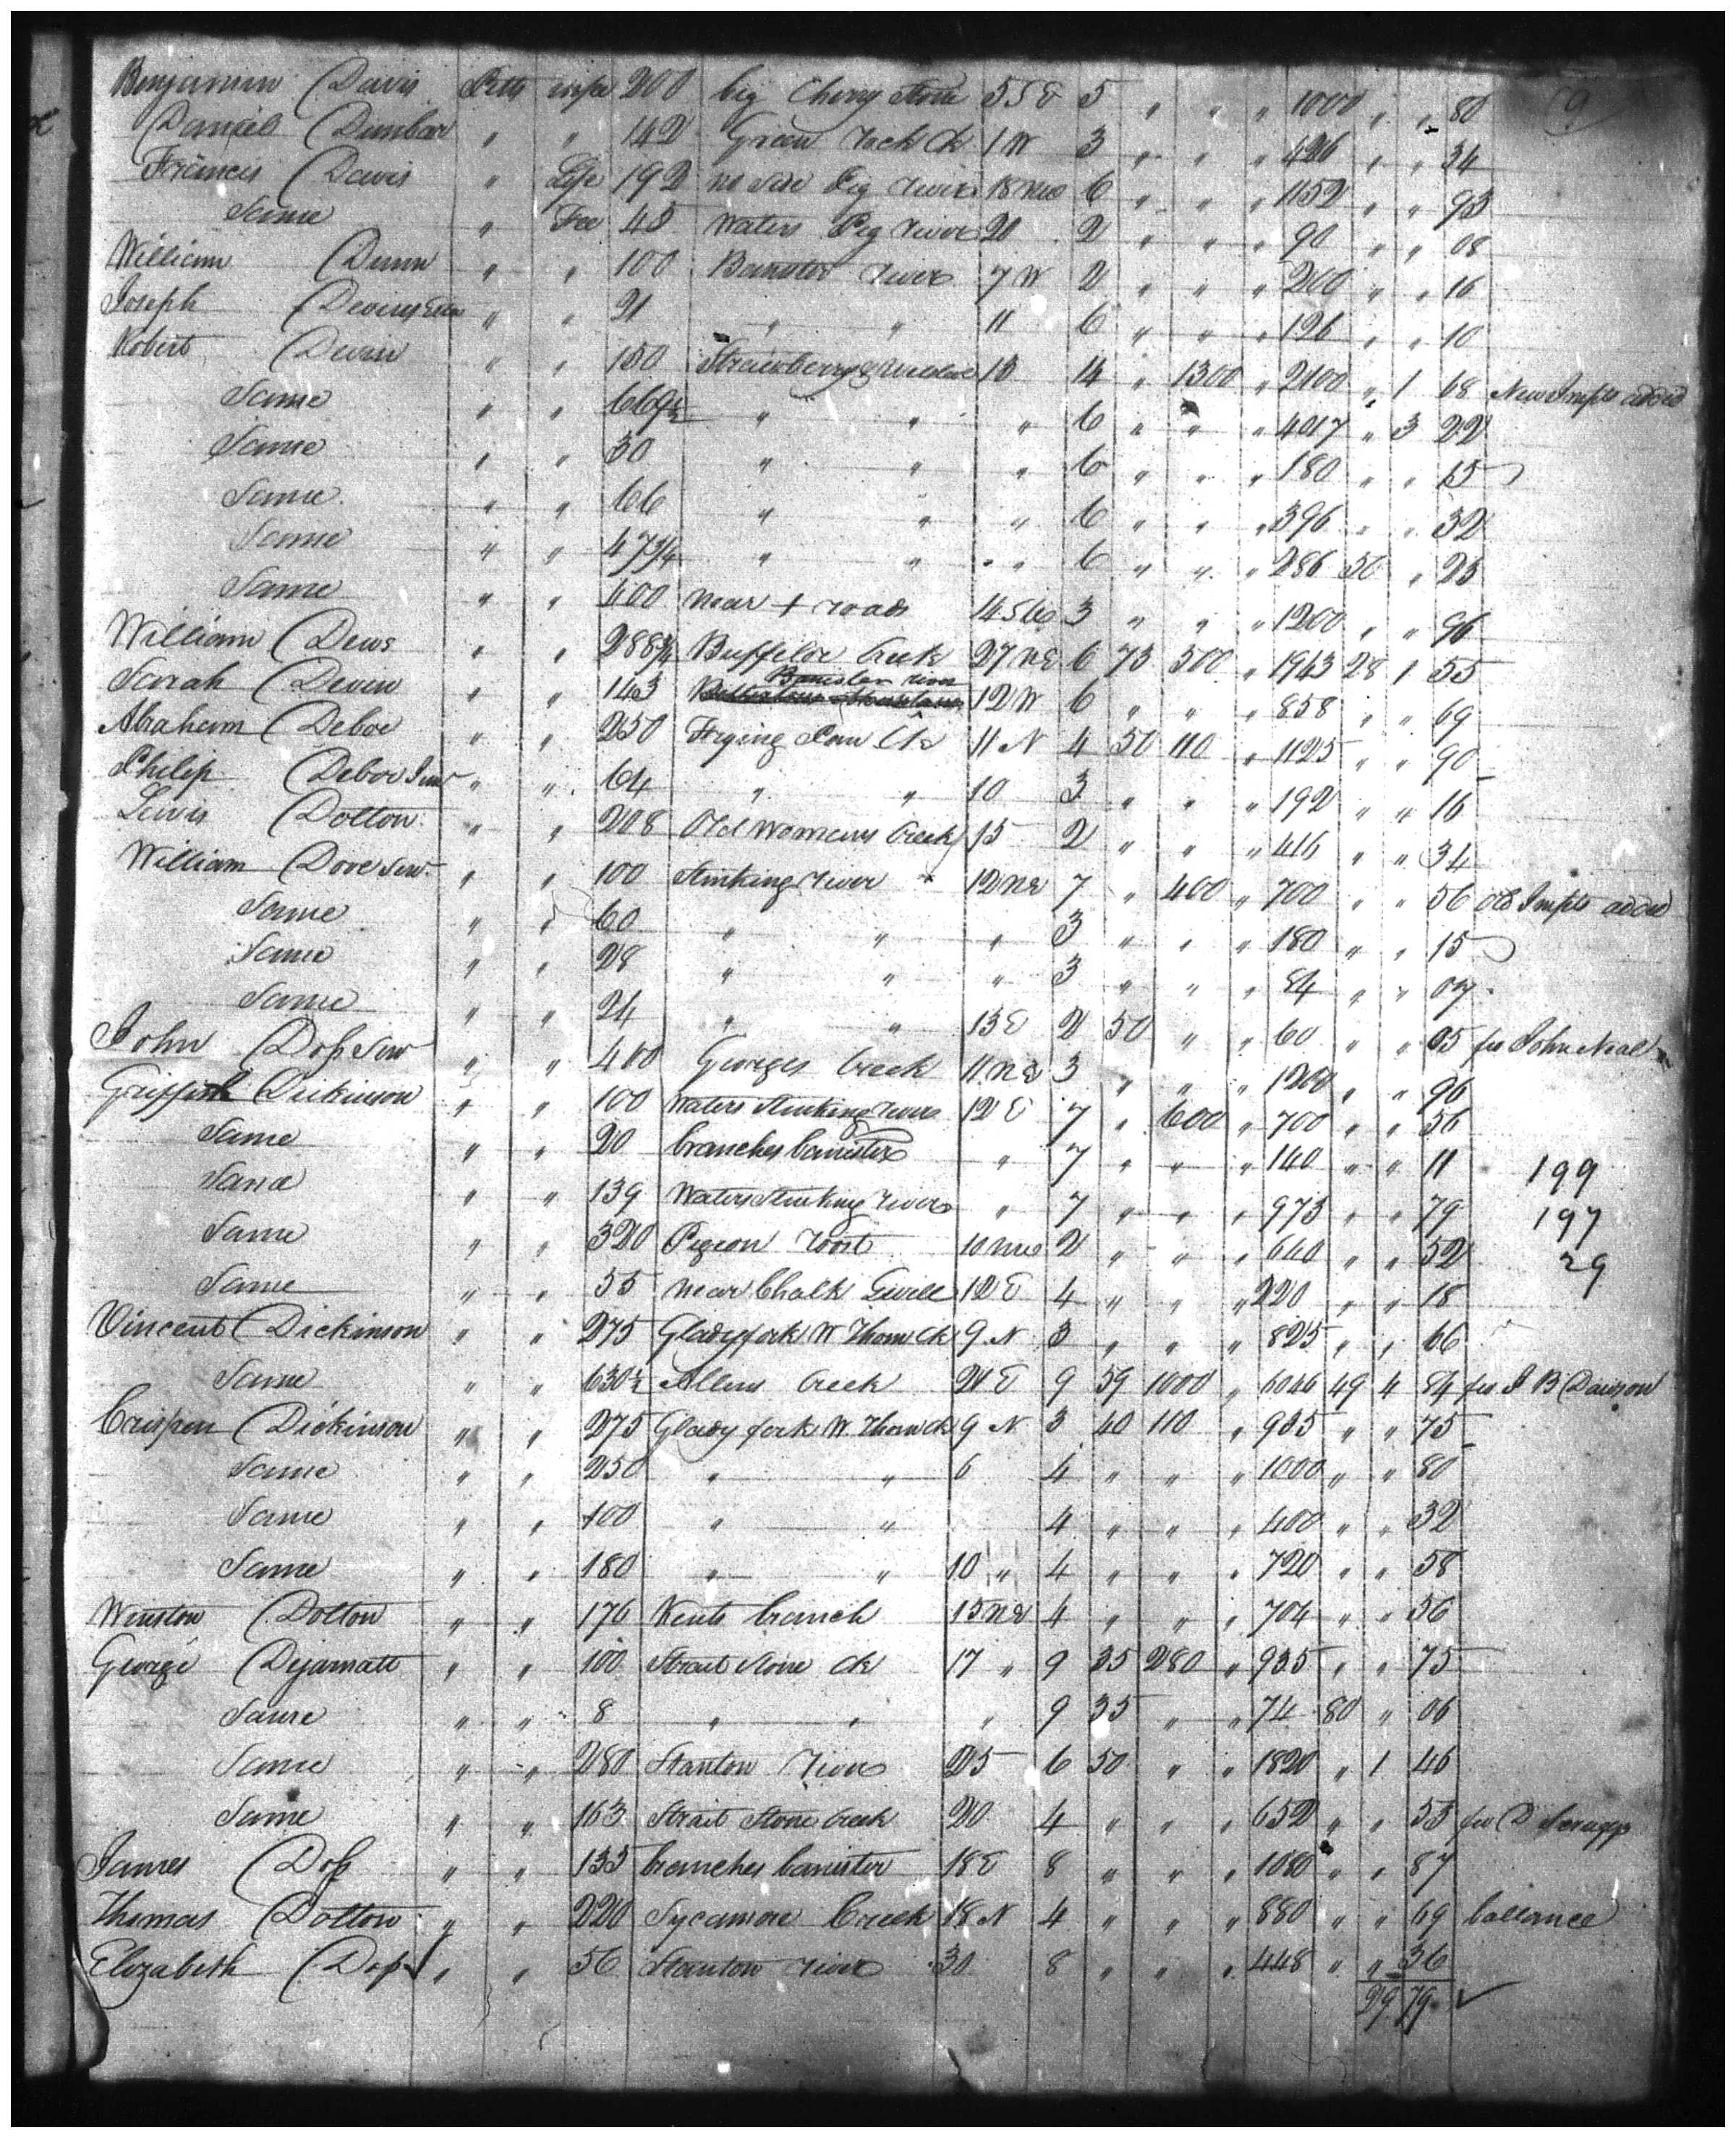 Benjamin Davis Pitts 200 big Cherry Stone 5 S E 5 " " " 1000 " " 80 (9)
Daniel Dunbar " " 142 Green Rock Ck 1 W 3 " " " 426 " " 34
Francis Davis " Life 192 no side Pig river 18 6 " " " 1152 " " 93
Same " Fee 45 Waters Pig river 20 2 " " " 90 " " 08
William Dunn " " 100 Banister river 7 W 2 " " " 200 " " 16
Joseph " " 21 " " 11 6 " " " 126 " " 10
Robert Devin " " 150 Strawberry & 13 14 " 1300 " 2100 " 1 68 New Impts added
Same " " 669½ " " " 6 " " " 4017 " 3 22
Same " " 30 " " " 6 " " " 180 " " 15
Same " " 66 " " " 6 " " " 396 " " 32
Same " " 47¾ " " " " 6 " " " 286 50 " 23
Same " " 400 near + roads 14 3 " " " 1200 " " 96
William Dews " " 288¾ Buffeloe Creek 27 NE 6 73 300 " 1943 28 1 55
Sarah Deven " " 143 Banister river 12 W 6 " " " 858 " " 69
Abraham Deboe " " 250 Frying Pan Ck 11 N 4 50 110 " 1125 " " 90
Philip Deboe " " 64 " " 10 3 " " " 192 " " 16
Lewis Dolton " " 208 Old Womans Creek 15 2 " " " 416 " " 34
William Dove Senr " " 100 Stinking river 12 NE 7 " 400 " 700 " " 56 old Impts added
Same " " 60 " " " 3 " " " 180 " " 15
Same " " 28 " " " 3 " " " 84 " " 07
Same " " 24 " " 13 E 2 50 " " 60 " " 05 fr John Neal
John Doss Senr " " 400 Georges Creek 11 NE 3 " " " 1200 " " 96
Griffith Dickinson " " 100 Waters Stinking river 12 E 7 " 600 " 700 " " 56
Same " " 20 branches banister " 7 " " " 140 " " 11 199
Same " " 139 Waters Stinking river " 7 " " " 973 " " 79 197
Same " " 320 Pigeon roost 10 2 " " " 640 " " 52 29
Same " " 55 near Chalk Level 12 E 4 " " " 220 " " 18
Vincent Dickinson " " 275 Glady fork W Thorn Ck 9 N 3 " " " 825 " " 66
Same " " 630½ Allens Creek 20 E 9 59 1000 " 6046 49 4 84 fr J B Dawson
Crispen Dickinson " " 275 Glady fork W Thorn Ck 9 N 3 40 110 " 935 " " 75
Same " " 250 " " 6 4 " " " 1000 " " 80
Same " " 100 " " 4 " " " 400 " " 32
Same " " 180 " " 10 " 4 " " " 720 " " 58
Winston Dolton " " 176 Kents branch 15 NE 4 " " " 704 " " 56
George Dejarnatt " " 100 Strait Stone Ck 17 " 9 35 280 " 935 " " 75
Same " " 8 " " " 9 35 " " 74 80 " 06
Same " " 280 Stanton River 25 6 50 " " 1820 " 1 46
Same " " 163 Strait Stone Creek 20 4 " " " 652 " " 53 fr D Scruggs
James Doss " " 135 branches banister 18 E 8 " " " 1080 " " 87
Thomas Dolton " " 220 Sycamore Creek 18 N 4 " " " 880 " " 69 ballance
Elizabeth Doss " " 56 Stanton river 30 8 " " " 448 " " 36
29 79 ✓